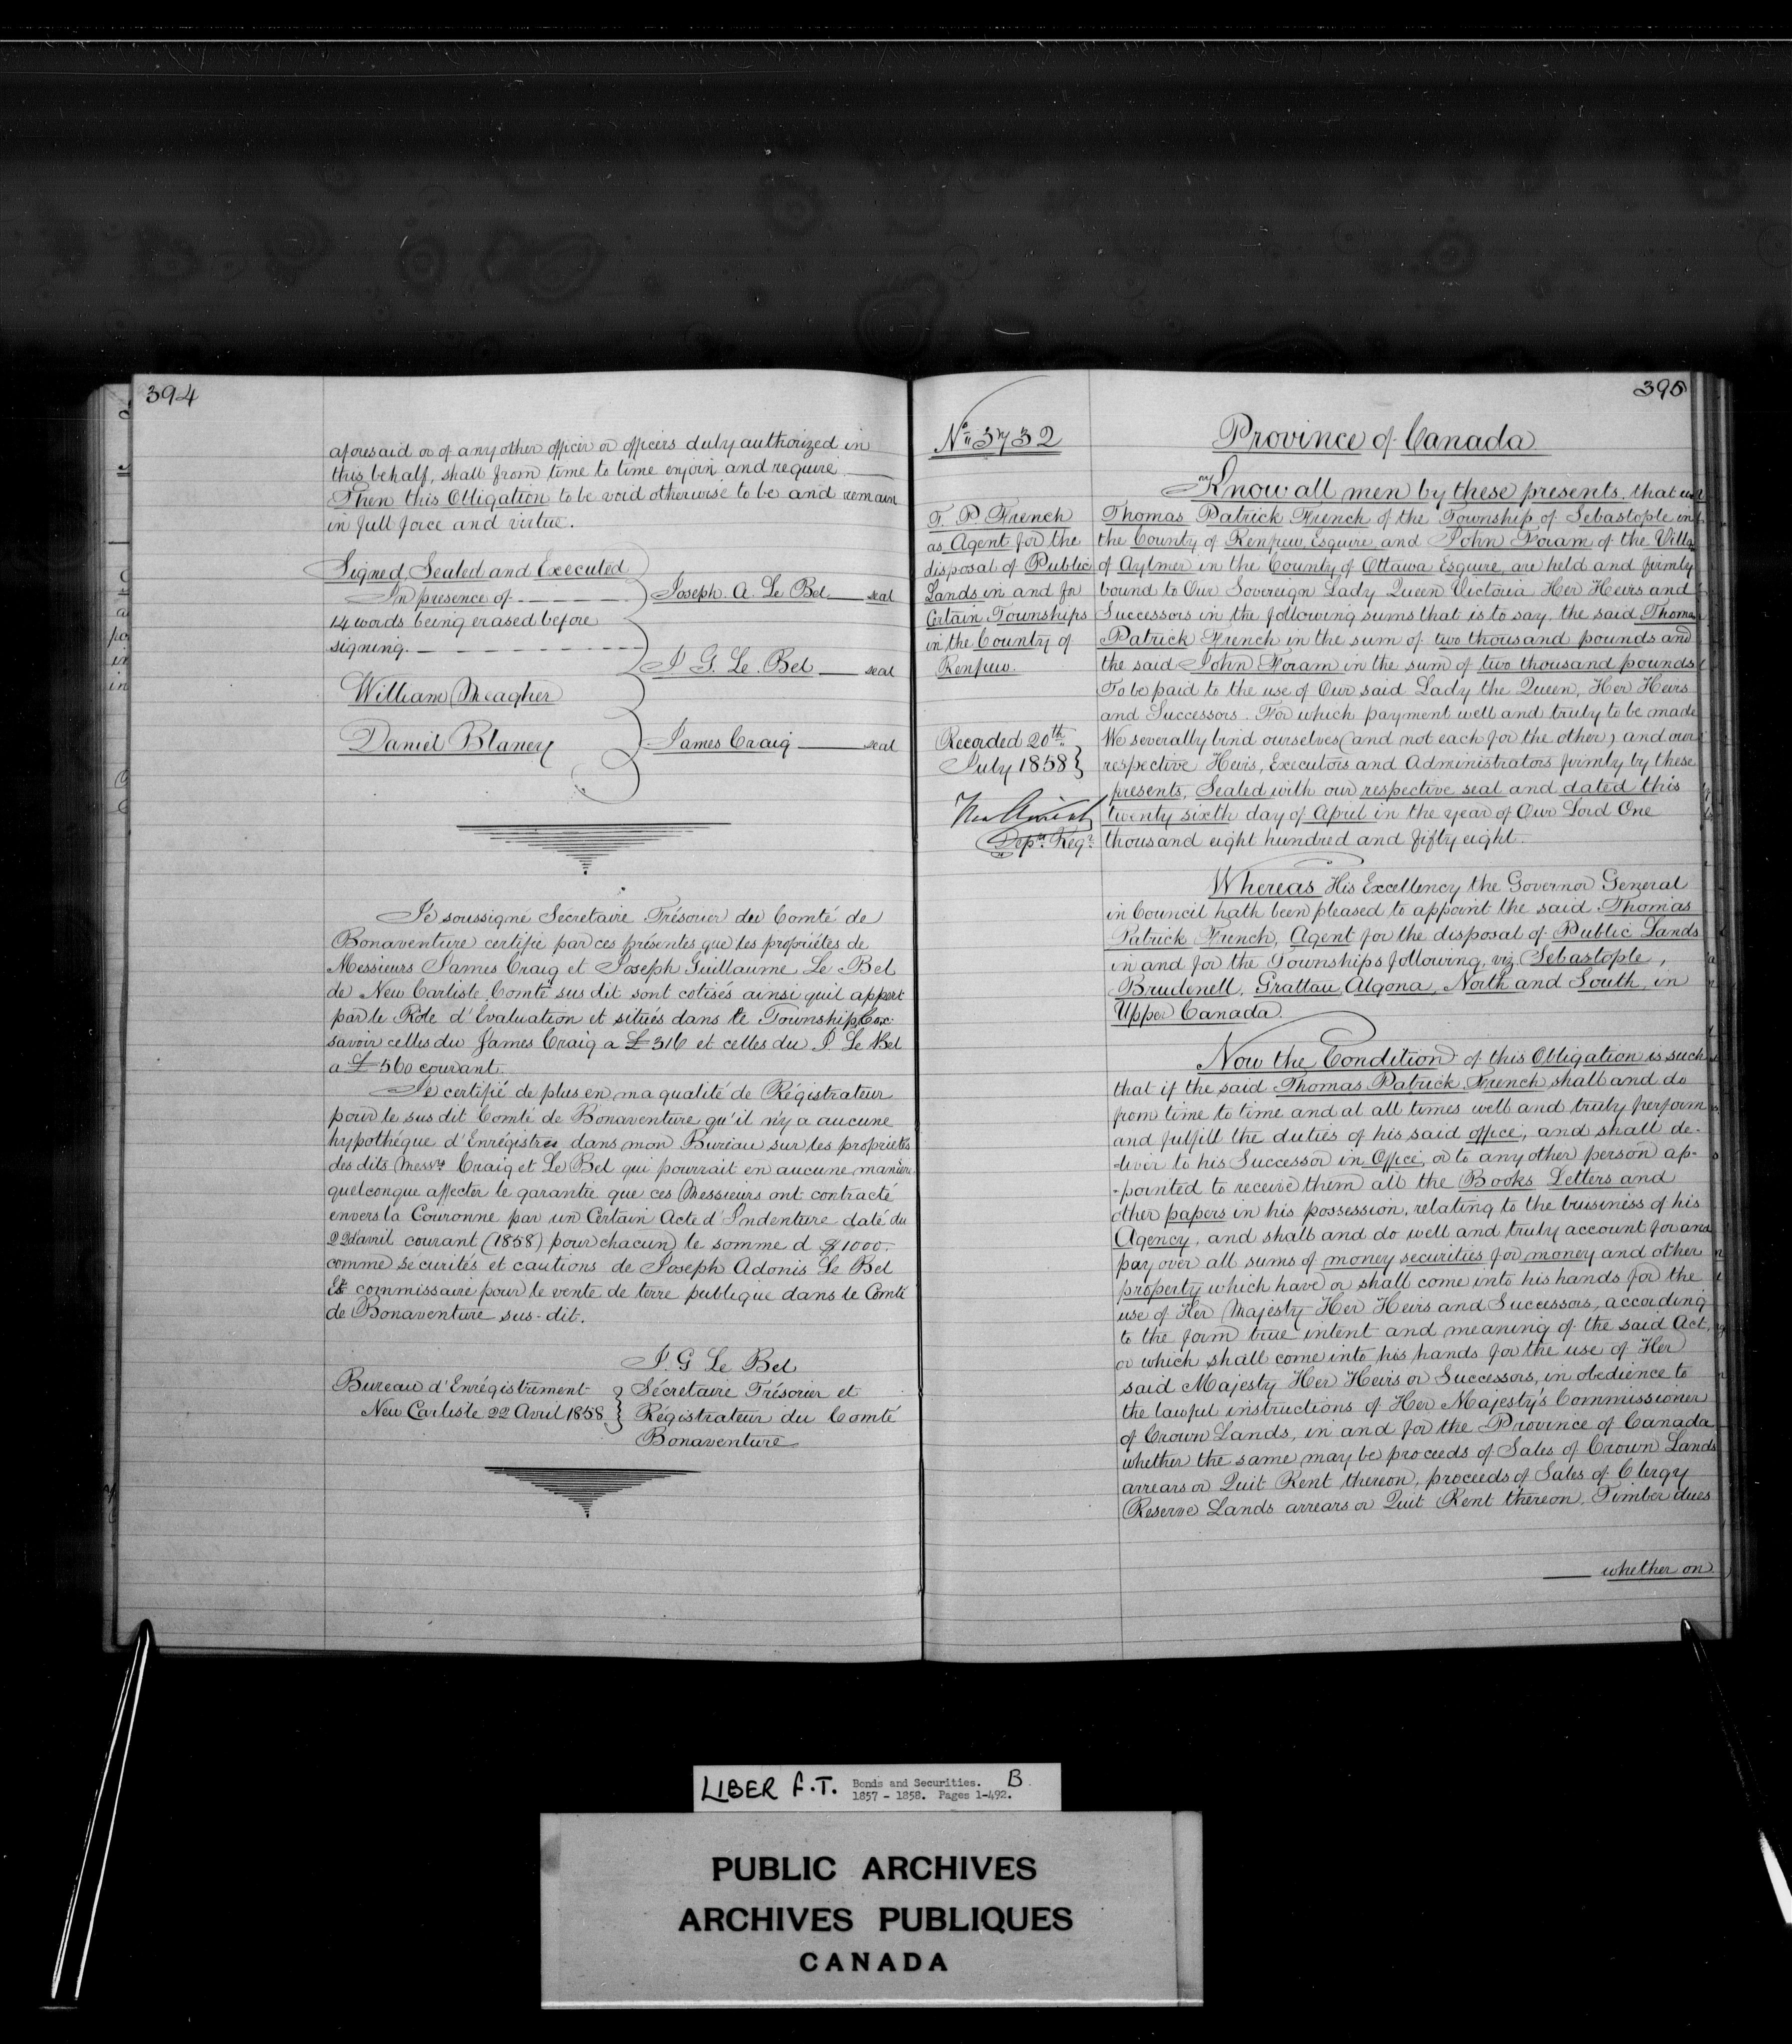 394
aforesaid or of any other officer or officers duly authorized in
this behalf, shall from time to time enjoin and require
Then this Obligation to be void otherwise to be and remain
in full force and virtue.
Signed, Sealed and Executed
In presence of
14 words being erased before
signing.
Joseph. A. Le Bel seal
J G. Le. Bel seal
William Meagher
Daniel Blaney
James Craig seal
Je soussigne Sécretaire Trésorier du Comté de
Bonaventure certifie par ces présentes que les propriétes de
Messieurs James Craig et Joseph Guillaume Le Bel
de New Carlisle Comté sus dit sont cotisés ainsi quil appert
par le Role d'Evaluation et situés dans le Township Cox
savoir celles du James Craig a £316 et celles du J. Le Bel
a £560 courant.
Je certifié de plus en ma qualité de Régistrateur
pour le sus dit Comté de Bonaventure qu'il n'y a aucune
hypothéque d'Enrégistres dans mon Bureau sur les proprietés
des dits Messrs Craig et Le Bel qui pourrait en aucune maniere
quelconque affecter le garantie que ces Messieurs ont contracté
envers la Couronne par un Certain Acte d'Indenture daté du
22d'avril courant (1858) pour chacun le somme d $1000.
comme securités et cautions de Joseph Adonis Le Bel
commissaire pour le vente de terre publique dans le Comté
de Bonaventure sus-dit.
J. G Le Bel
Bureau d'Enrégistrement
New Carlisle 22 Avril 1858
Sécretaire Trésorier et
Régistrateur du Comté
Bonaventure
395
No 3732
Province of Canada
Know all men by these presents, that we
T. P. French
as Agent for the
disposal of Public
Lands in and for
Certain Townships
in the Country of
Renfrew.
Recorded 20th
July 1858
Depy. Regr.
Thomas Patrick French of the Township of Sebastople in
the County of Renfrew, Esquire, and John Foram of the Villa
of Aylmer in the County of Ottawa Esquire, are held and firmly
bound to Our Sovereign Lady Queen Victoria Her Heirs and
Successors in the following sums that is to say, the said Thomas
Patrick French in the sum of two thousand pounds and
the said John Foram in the sum of two thousand pounds
To be paid to the use of Our said Lady the Queen, Her Heirs
and Successors. For which payment well and truly to be made
We severally bind ourselves (and not each for the other) and our
respective Heirs, Executors and Administrators firmly by these
presents, Sealed with our respective seal and dated this
twenty sixth day of April in the year of Our Lord One
thousand eight hundred and fifty eight.
Whereas His Excellency the Governor General
in Council hath been pleased to appoint the said Thomas
Patrick French, Agent for the disposal of Public Lands
in and for the Townships following, viz Sebastople,
Brudenell, Grattan, Algona, North and South, in
Upper Canada.
Now the Condition of this Obligation is such
that if the said Thomas Patrick French shall and do
from time to time and at all times well and truly perform
and fulfill the duties of his said office, and shall de-
-liver to his Successor in Office, or to any other person ap-
-pointed to receive them all the Books Letters and
other papers in his possession, relating to the buisiness of his
Agency, and shall and do well and truly account for and
pay over all sums of money securities for money and other
property which have or shall come into his hands for the
use of Her Majesty Her Heirs and Successors, according
to the form true intent and meaning of the said Act,
or which shall come into his hands for the use of Her
said Majesty Her Heirs or Successors, in obedience to
the lawful instructions of Her Majesty's Commissioner
of Crown Lands, in and for the Province of Canada
whether the same may be proceeds of Sales of Crown Lands
arrears or Quit Rent thereon, proceeds of Sales of Clergy
Reserve Lands arrears or Quit Rent thereon, Timber dues
whether on
LIBER F.T. Bonds and Securities. B
1857 - 1858. Pages 1-492.
PUBLIC ARCHIVES
ARCHIVES PUBLIQUES
CANADA